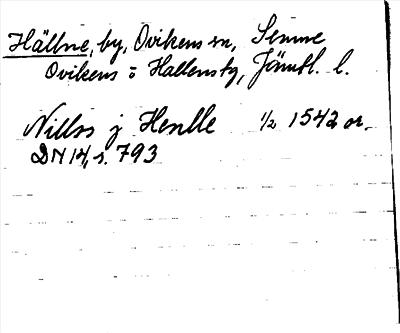 Hällne, by, Ovikens sn,
Ovikens o Hallens tg, Jämtl. l.
Nillss j Henlle 1/2 1542 or.
DN 14, s. 793